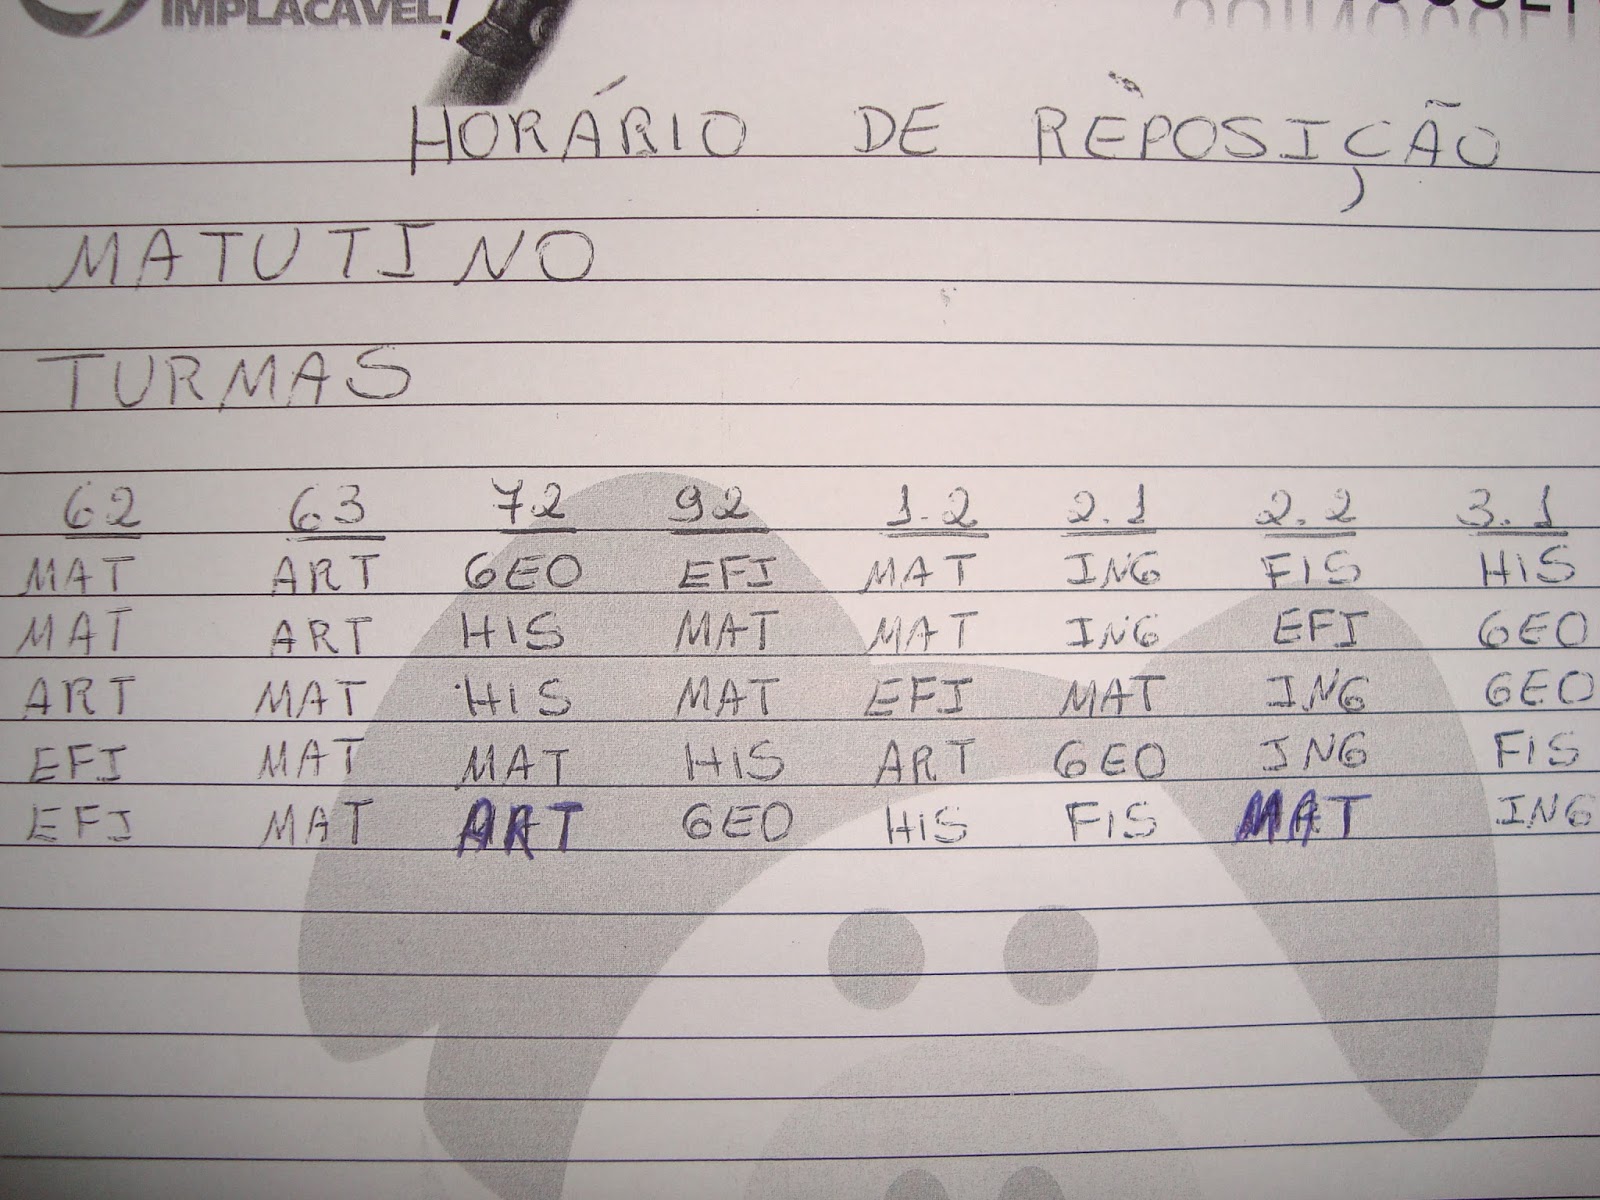 IMPLACÁVEL!
HORÁRIO DE REPOSIÇÃO
MATUTINO
TURMAS
62 63 72 92 1.2 2.1 2.2 3.1
MAT ART GEO EFI MAT ING FIS HIS
MAT ART HIS MAT MAT ING EFI GEO
ART MAT HIS MAT EFI MAT ING GEO
EFI MAT MAT HIS ART GEO ING FIS
EFI MAT ART GEO HIS FIS MAT ING